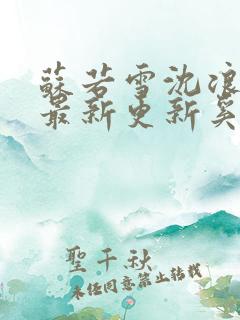 蘇若雪沈浪
最新更新奚
聖千秋
未经同意禁止转载